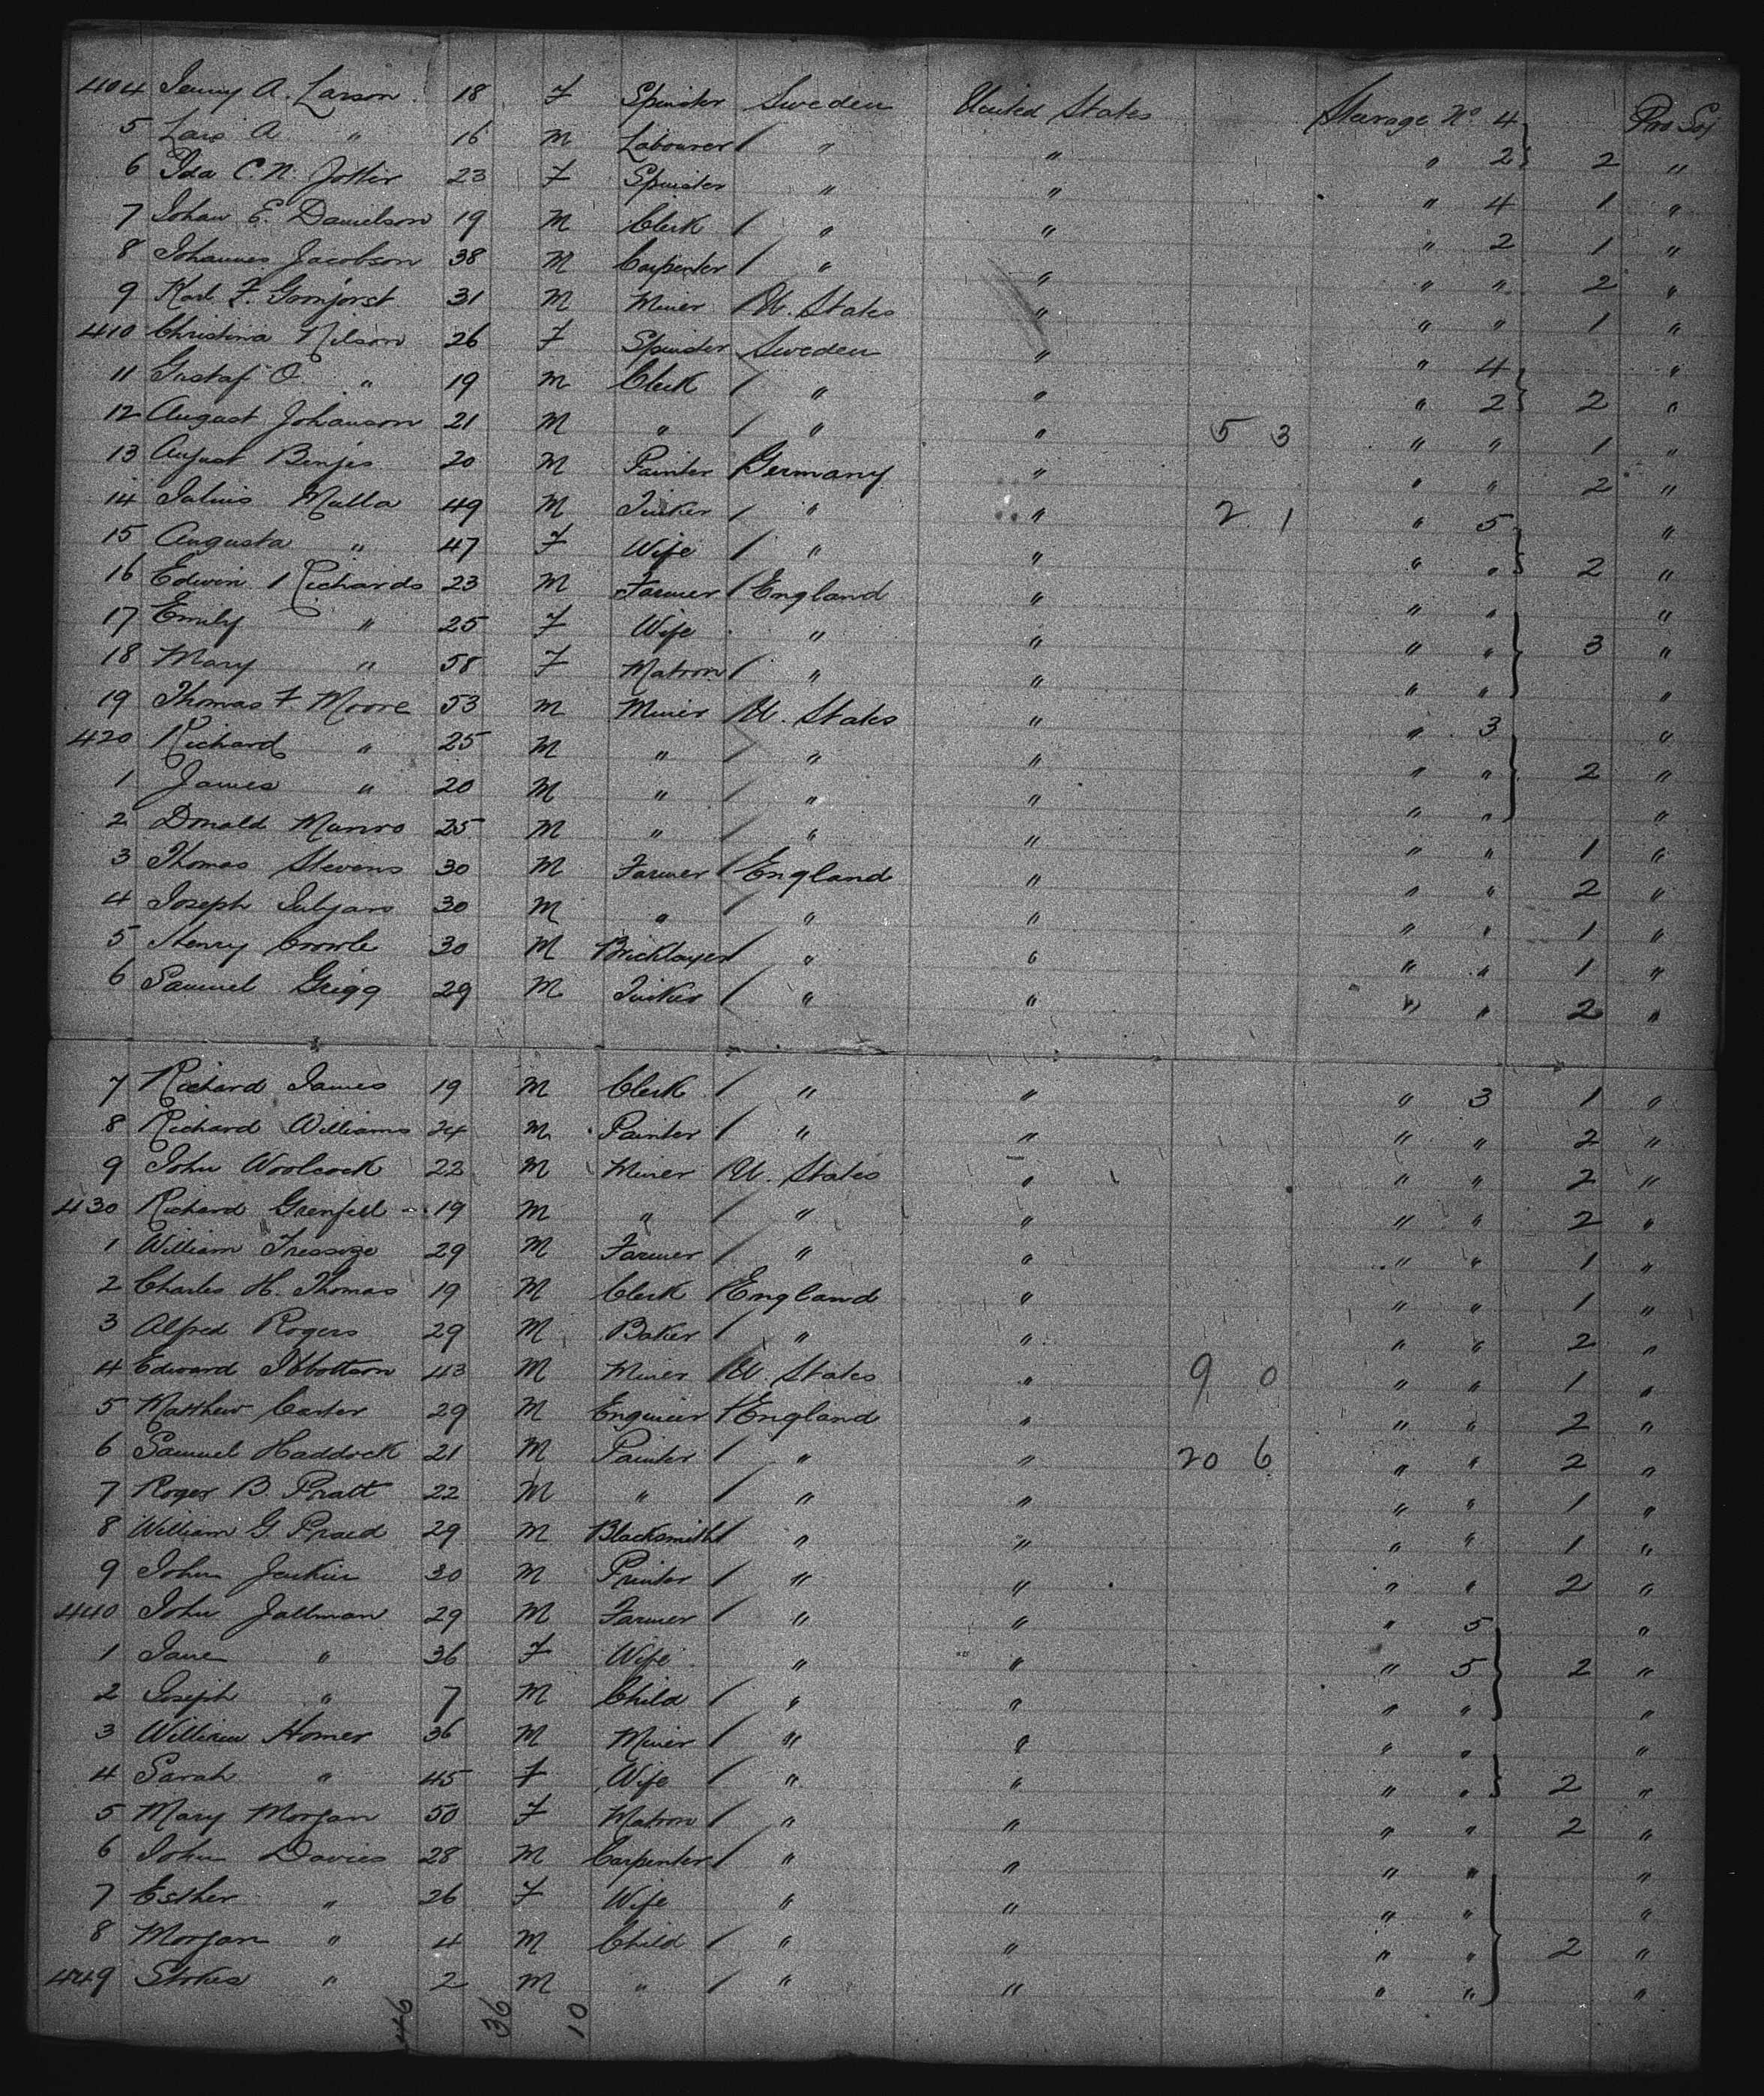 404 Jenny A. Larson 18 F Spinster Sweden United States Steerage No 4 Pro Soj
5 Lars A " 16 M Labourer / " " " 2 } 2 "
6 Ida C. N. 23 F Spinster " " " 4 1 "
7 Johan E. Danielson 19 M Clerk / " " " 2 1 "
8 Johannes Jacobson 38 M Carpenter / " " " " 2 "
9 Karl F. 31 M Miner / U. States " " " 1 "
410 Christina Nilson 26 F Spinster Sweden " " 4 "
11 Gustaf O. " 19 M Clerk / " " " 2 } 2 "
12 August Johanson 21 M " / " " 5 3 " " 1 "
13 August Benjes 20 M Painter / Germany " " " 2 "
14 Julius Mulla 49 M Tinker / " " 2 1 " 5 "
15 Augusta " 47 F Wife / " " " " } 2 "
16 Edwin / Richards 23 M Farmer / England " " " "
17 Emily " 25 F Wife " " " " } 3 "
18 Mary " 58 F Matron / " " " " "
19 Thomas F Moore 53 M Miner / U. States " " 3 "
420 Richard " 25 M " / " " " " } 2 "
1 James " 20 M " / " " " " "
2 Donald Munro 25 M " / " " " " 1 "
3 Thomas Stevens 30 M Farmer / England " " " 2 "
4 Joseph 30 M " / " " " " 1 "
5 Henry Crowle 30 M Bricklayer / " " " " 1 "
6 Samuel Grigg 29 M Tinker / " " " " 2 "
7 Richard James 19 M Clerk / " " " 3 1 "
8 Richard Williams 24 M Painter / " " " " 2 "
9 John Woolcock 22 M Miner / U. States " " " 2 "
430 Richard Grenfell 19 M " / " " " " 2 "
1 William 29 M Farmer / " " " " 1 "
2 Charles H. Thomas 19 M Clerk / England " " " 1 "
3 Alfred Rogers 29 M Baker / " " " " 2 "
4 Edward Ibbottson 43 M Miner / U. States " 9 0 " " 1 "
5 Matthew Carter 29 M Engineer / England " " " 2 "
6 Samuel Haddock 21 M Painter / " " 20 6 " " 2 "
7 Roger B. Pratt 22 M " / " " " " 1 "
8 William G. Praed 29 M Blacksmith / " " " " 1 "
9 John Jenkin 30 M Printer / " " " " 2 "
440 John Jallman 29 M Farmer / " " " 5 "
1 Jane " 36 F Wife " " " 5 } 2 "
2 Joseph " 7 M Child / " " " " "
3 William Homer 36 M Miner / " " " " "
4 Sarah " 45 F Wife / " " " " } 2 "
5 Mary Morgan 50 F Matron / " " " " 2 "
6 John Davies 28 M Carpenter / " " " " "
7 Esther " 26 F Wife " " " " "
8 Morgan " 4 M Child / " " " " } 2 "
449 Stokes " 2 M " / " " " " "
46 36 10